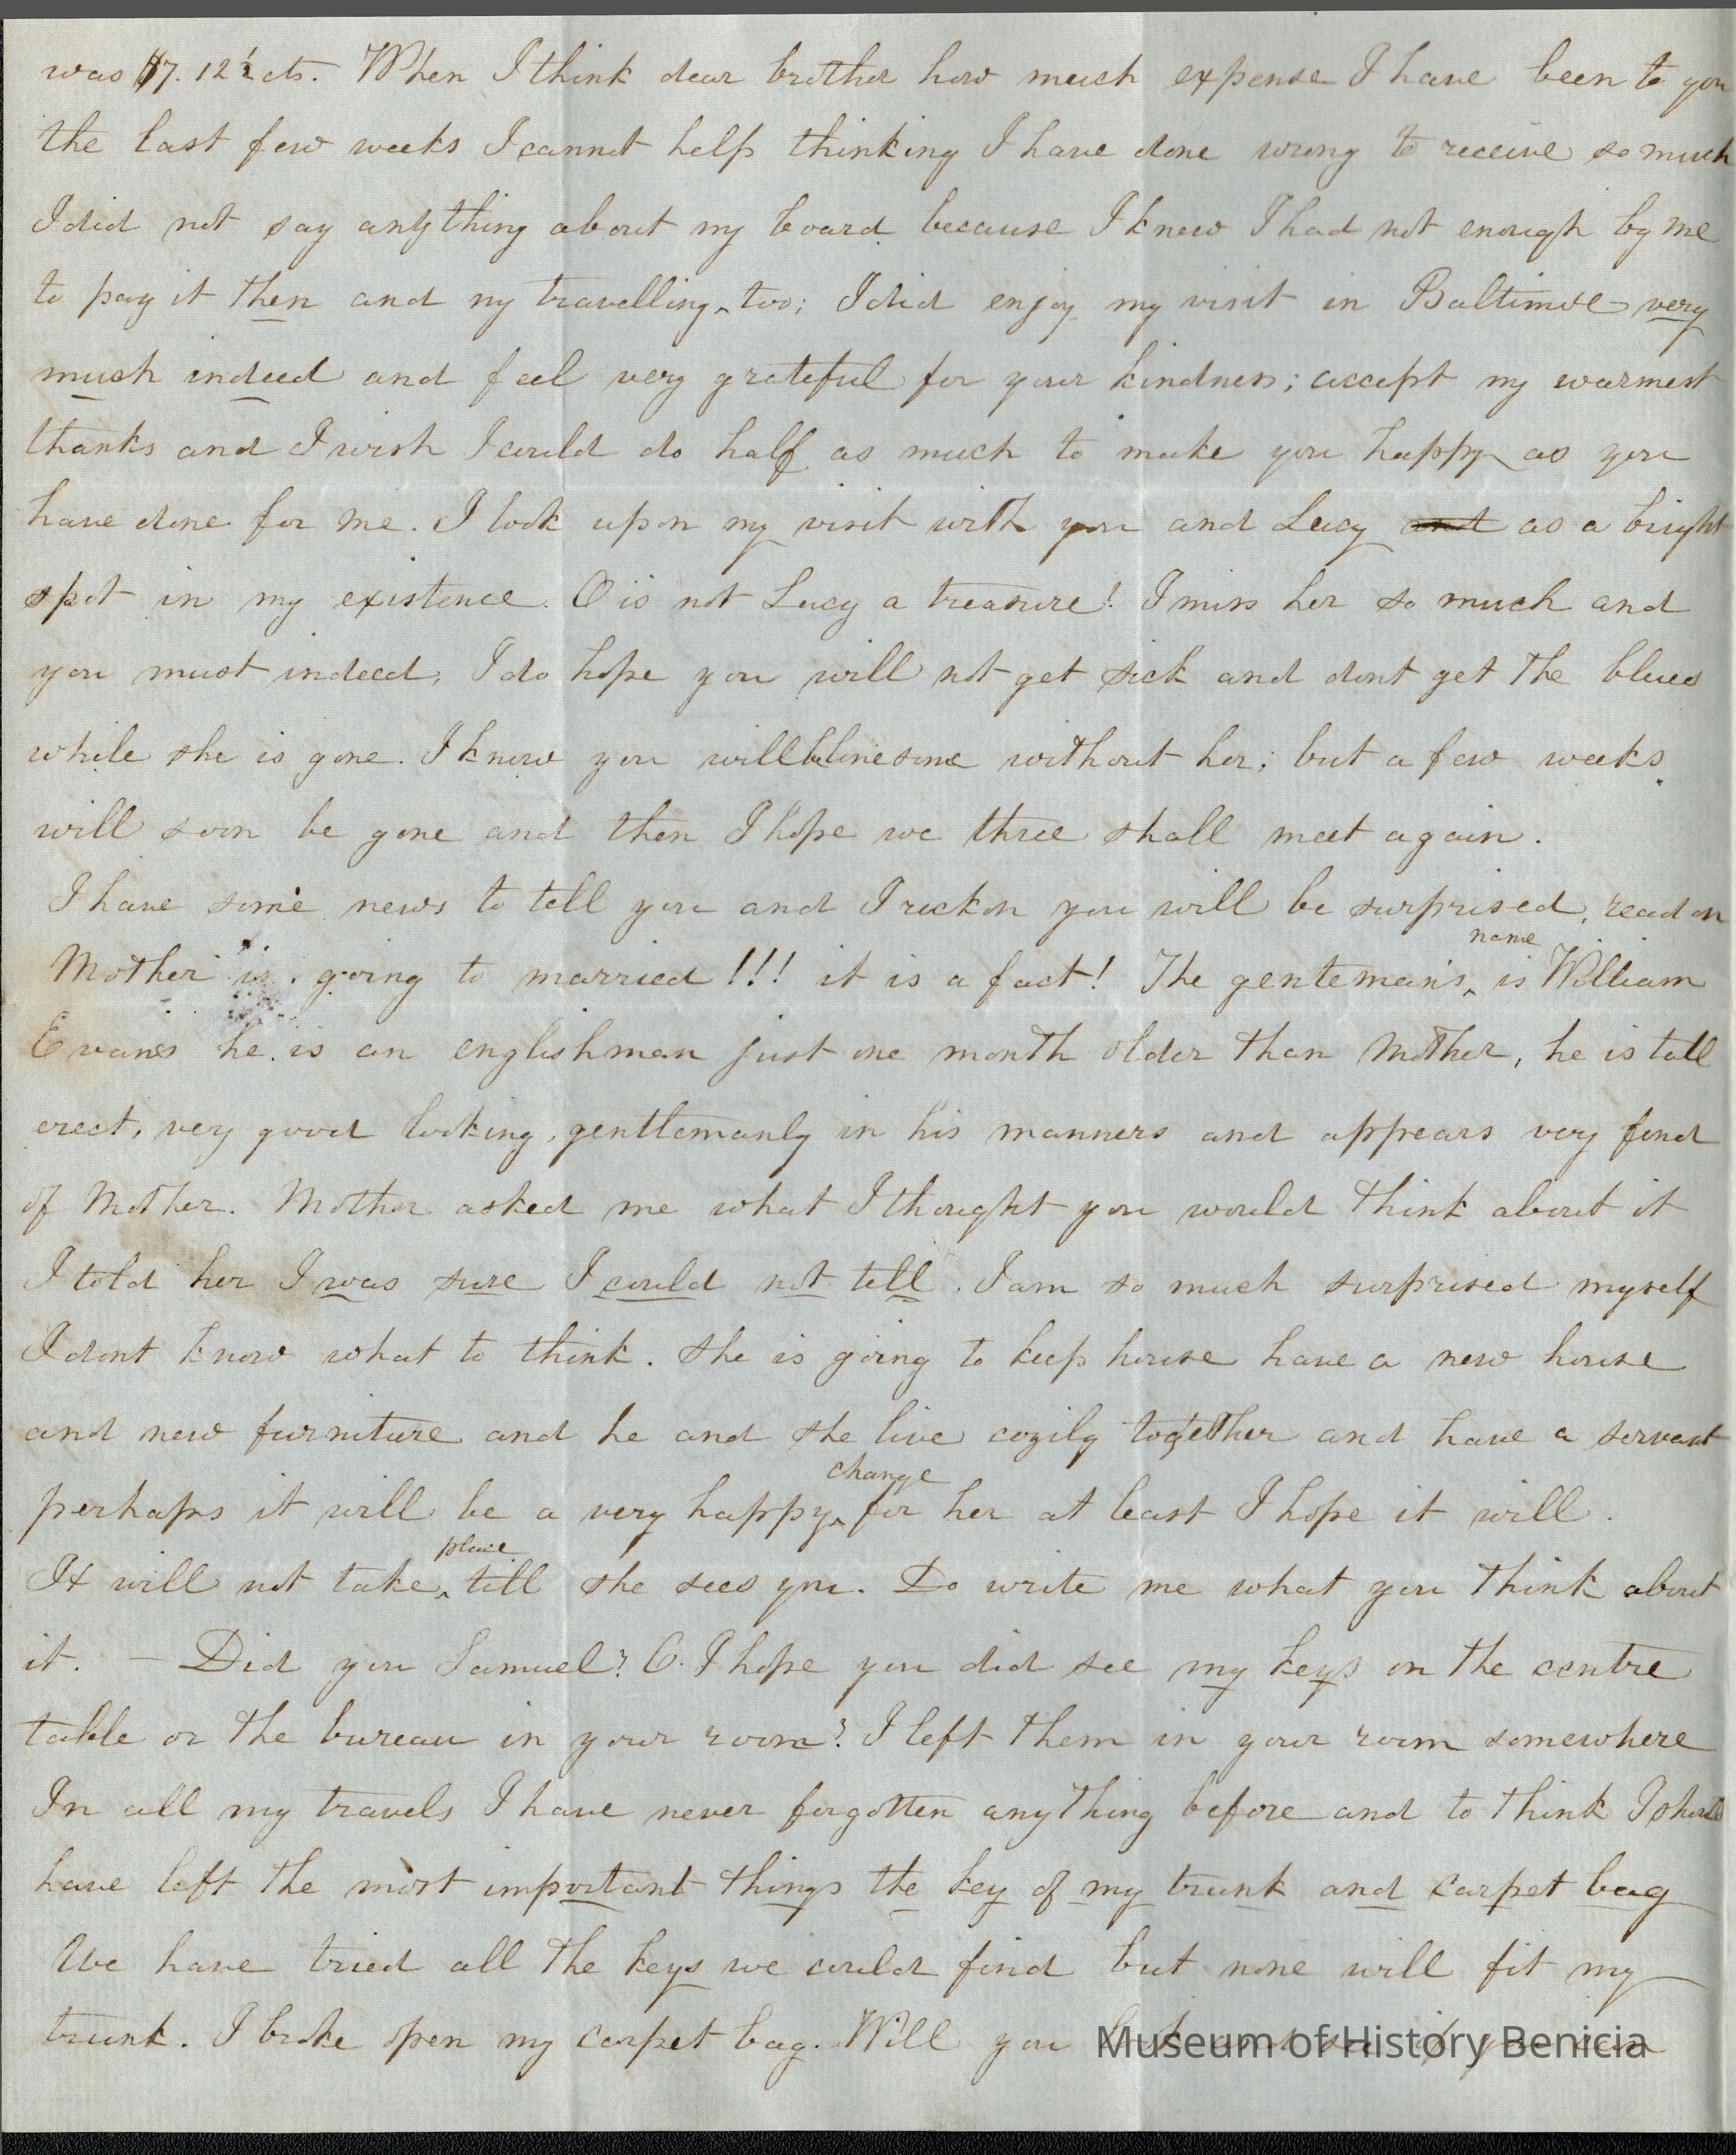 was $7. 12½ cts. When I think dear brother how much expense I have been to you
the last few weeks I cannot help thinking I have done wrong to receive so much
I did not say anything about my board because I knew I had not enough by me
to pay it then and my travelling, too; I did enjoy my visit in Baltimore very
much indeed and feel very grateful for your kindness; accept my warmest
thanks and I wish I could do half as much to make you happy as you
have done for me. I look upon my visit with you and Lucy and as a bright
spot in my existence. O is not Lucy a treasure! I miss her so much and
you must indeed, I do hope you will not get sick and dont get the blues
while she is gone. I know you will be lonesome without her; but a few weeks
will soon be gone and then I hope we three shall meet again.
I have some news to tell you and I reckon you will be surprised, read on
Mother is going to married!!! it is a fact! The genteman's name is William
Evanes he is an englishman just one month older than Mother, he is tall
erect, very good looking, gentlemanly in his manners and appears very fond
of Mother. Mother asked me what I thought you would think about it
I told her I was sure I could not tell. I am so much surprised myself
I dont know what to think. She is going to keep house have a new house
and new furniture and he and she live cozily together and have a servant
perhaps it will be a very happy change for her at least I hope it will.
It will not take place till she sees you. Do write me what you think about
it. — Did you Samuel? O. I hope you did see my keys on the centre
table or the bureau in your room? I left them in your room somewhere
In all my travels I have never forgotten anything before and to think I should
have left the most important things the key of my trunk and carpet bag
We have tried all the keys we could find but none will fit my
trunk. I broke open my carpet bag. Will you
Museum of History Benicia